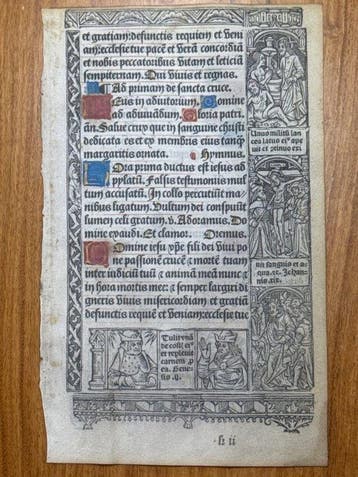 et gratiam: defunctis requiem et veni
am: ecclesie tue pacē et verā concordiā
et nobis peccatoribus vitam et leticiā
sempiternam. Qui viuis et regnas.
Ad primam de sancta cruce.
Deus in adiutorium. Domine
ad adiuuādum. Gloria patri.
ān. Salue crux que in sanguine christi
dedicata es: et ex membris eius tanq̄
margaritis ornata. Hymnus.
Hora prima ductus est iesus ad
pylatū. Falsis testimoniis mul
tum accusatū. In collo percutiūt ma
nibus ligatum. Vultum dei conspuūt
lumen celi gratum. v. Adoramus. Do
mine exaudi. Et clamor. Oremus.
Domine iesu xp̄e fili dei viui po
ne passionē crucē & mortē tuam
inter iudiciū tuū & animā meā nunc &
in hora mortis mee: & semper largiri di
gneris viuis misericordiam et gratiā
defunctis requiē et veniam: ecclesie tue
Vnus militū lan
cea latus eius ape
ruit et ꝯtinuo exi
uit sanguis et a
qua. Johan
nis. xix.
Tulit vnā
de costis eiꝰ
et repleuit
carnem p̄
ea. Gene
sis. ij.
ii